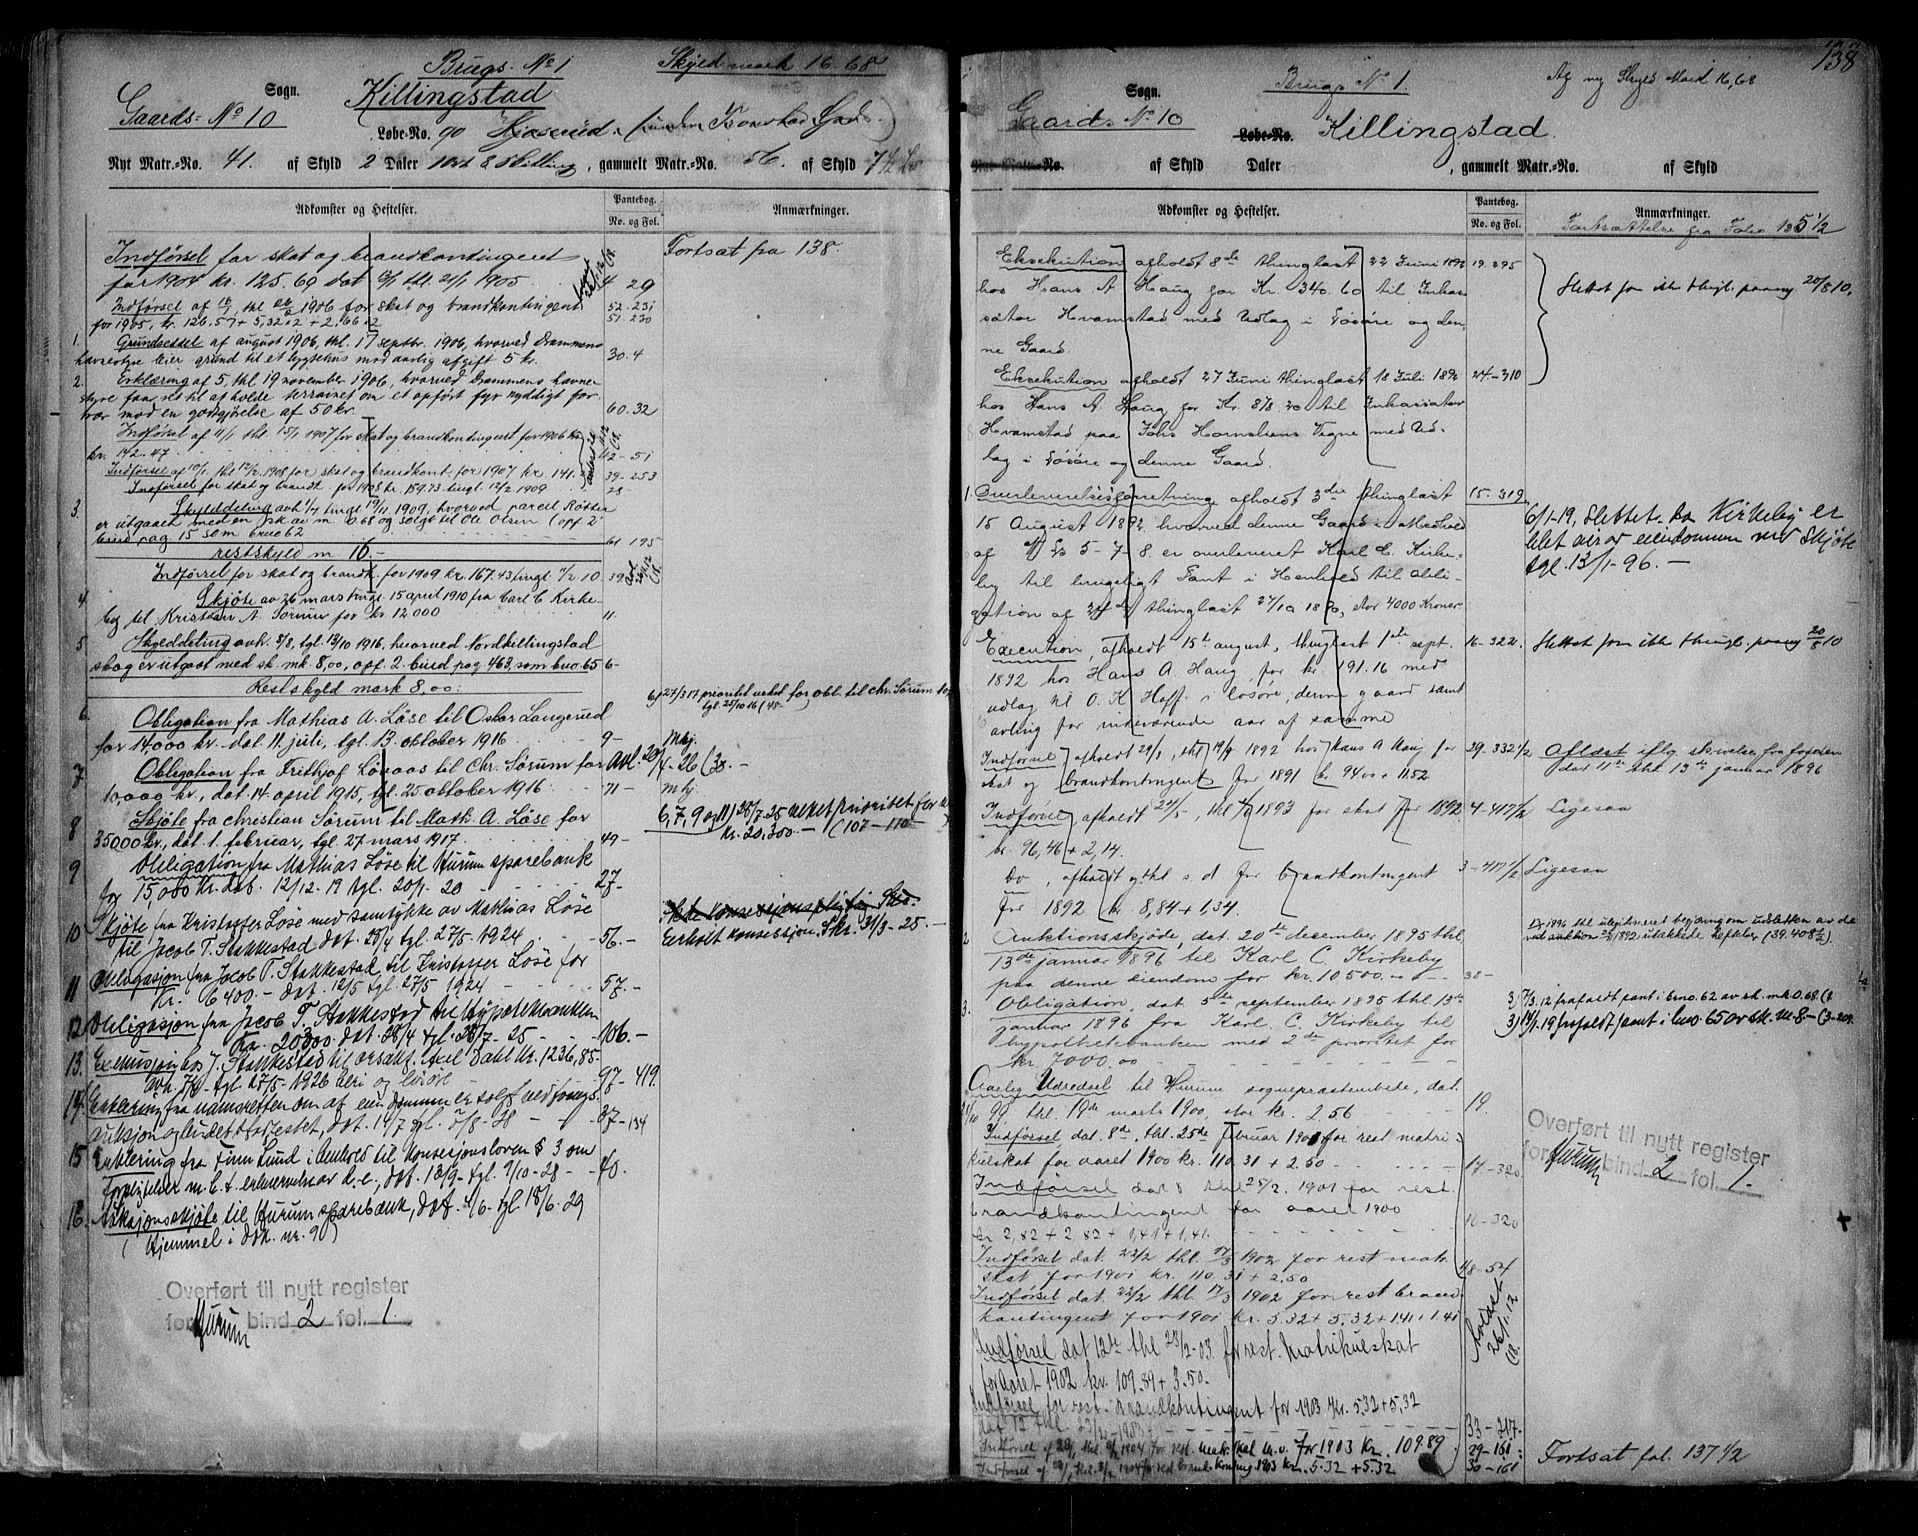 Brugs- No 1
Skyld mark 16.68
Sogn.
Killingstad
Gaards- No 10
Løbe-No. 90
Nyt Matr.-No. 41. af Skyld 2 Daler 1 ort 8 skilling, gammelt Matr.-No. 56. af Skyld 7 1/2
Adkomster og Heftelser.
Pantebog.
No. og Fol.
Anmærkninger.
Indførsel for skat og brandkontingent
for 1904 kr. 125.69 dat thl. 21/1 1905
4 29
Fortsat paa 138.
Indførsel af thl. 1906 for skat og brandkontingent
for 1905, kr. 126,57 + 5,32 x 2 + 2,66 x 2
52. 231
51. 230
1. Grundseddel af august 1906, thl. 17 septbr. 1906, hvorved Drammens
havnestyre leier grund til et lygtehus mod aarlig afgift 5 kr.
30. 4
2. Erklæring af 5, thl 19 november 1906, hvorved Drammens havne-
styre faar ret til at holde terrainet om et opført fyr ryddigt for
trær mod en godtgjørelse af 50 kr.
60. 32
Indførsel af 11/1 thl. 15/1 1907 for skat og brandkontingent for 1906 kr.
kr. 142.47
42 - 51
Indførsel af 10/1 thl 12/2 1908 for skat og brandkont. for 1907 kr. 141.
39 - 253
Indførsel for skat og brandk. for 1908 kr. 159.73 tingl. 12/2 1909
28
3. Skylddeling avh. 1/7 tingl. 19/11 1909, hvorved parcel Røtter
er utgaaet med en sk av m 0.68 og solgt til Ole Olsen (opf 2
bind pag. 15 som bruo 62
61. 195
restskyld m 16.-
Indførsel for skat og brandk. for 1909 kr. 167.43 tingl. 7/2 10
39
4 Skjøte av 26 mars tingl. 15 april 1910 fra Carl C. Kirke-
by til Kristian A. Sørum for kr. 12 000
11.
5 Skylddeling avh. 8/8, tgl. 13/10 1916, hvorved Nordkillingstad
skog er utgaat med sk. mk. 8,00, opf. 2. bind pag 463, som bno. 65
6-
Restskyld mark 8,00:
6) 27/3 17 prioritet veket for obl. til Chr. Sørum
tgl. 25/10 16 (48-
6. Obligation fra Mathias A. Løse til Oskar Langerud
for 14,000 kr. dat. 11. juli, tgl. 13. oktober 1916.
9-
Mkj.
7 Obligation fra Frithjof Lønaas til Chr. Sørum for
10,000 kr., dat. 14. april 1915, tgl. 25. oktober 1916
11-
Avl. 20/4-26 (38.-
Mkj.
8 Skjøte fra Christian Sørum til Math. A. Løse for
35000 kr., dat. 1. februar, tgl. 27 mars 1917.
49-
6, 7, 9 og 11) 28/7-25 veket prioritet for
kr. 20,300.- (107-110
9 Obligation fra Mathias Løse til Hurum sparebank
for 15,000 kr. dat. 12/12-19 tgl. 20/1-20
27-
10 Skjøte fra Kristoffer Løse med samtykke av Mathias Løse
til Jacob T. Stokkestad dat. 28/4 tgl. 27/5-1924
56.-
Ikke konsesjonspliktig Skr.
Erholt konsesjon. Skr. 31/3-25.-
11 Obligasjon fra Jacob T. Stokkestad til Kristoffer Løse for
Kr. 6 400.- dat. 12/5 tgl. 27/5 1924
57.-
12. Obligasjon fra Jacob T. Stokkestad til Hypotekbanken
Kr. 20300 dat. 28/4 tgl. 28/7-25
106.-
13. Exekusjon hos J. Stokkestad til orsakf. Axel Dahl Kr. 1236,85.
avh. 7/4- tgl. 27/5-1926 heri og løsøre
97-419.
14. Erklering fra namsretten om at eiendommen er solgt ved tvangs-
auksjon og budet stadfestet, dat. 19/7 tgl. 7/8-28
37-134
15 Erklering fra Finn Lund i henhold til konsesjonsloven § 3 om
forpligtelser m. h. t. erhvervelse av d.e., dat. 13/9- tgl. 9/10-28
40.
16. Auksjonsskjøte til Hurum sparebank, dat. 4/6- tgl. 18/6-29
(Hjemmel i dok. nr. 9)
Overført til nytt register
for Hurum bind 2 fol. 1.
138
Brugs No 1.
Af ny Skyld Mark 16,68
Sogn.
Gaards No 10
Løbe-No. Killingstad.
Nyt Matr.-No. af Skyld Daler , gammelt Matr.-No. af Skyld
Adkomster og Heftelser.
Pantebog.
No. og Fol.
Anmærkninger.
Fortsættelse fra Folio 135 1/2
Eksekution afholdt 8de thinglæst 22 Juni 1892
19. 295
hos Hans A. Haug for Kr. 340.60 til Inkas-
sator Hvamstad med Udlag i Løsøre og den-
ne Gaard.
Slettet for ikke thingl. paany 20/8 10.
Eksekution afholdt 27 Juni thinglæst 18 Juli 1892
24-310
hos Hans A. Haug for Kr. 878.20 til Inkassator
Hvamstad paa Johs Hornelsens Vegne med Ud-
lag i Løsøre og denne Gaard.
1. Overleverelsesforretning afholdt 3die thinglæst
15-319
15 August 1892, hvorved denne Gaard
af No 5-7-8. er overleveret Karl C. Kirke-
by til brugeligt Pant i Henhold til Obli-
gation af 24de thinglæst 27/10 1890, stor 4000 Kroner
6/1-19, slettet da Kirkeby er
blet eier av eiendommen ved skjøte
tgl. 13/1-96.-
Execution, afholdt 15de august, thinglæst 1ste sept.
16-322
1892 hos Hans A. Haug for kr. 191.16 med
udlag til O. K. Hoff. i løsøre, denne gaard samt
avling for inteværende aar af samme
Slettet for ikke thingl. paany 20/8 10
Indførsel afholdt 29/8, thl 19/9 1892 hos Hans A Haug for
29-332 1/2
skat og brandkontingent for 1891 kr 94.00 + 11.52
Aflæst iflg. skrivelse fra fogden
dat 11te thl. 13de januar 1896
Indførsel, afholdt 24/5-, thl 1893 for skat for 1892
4-417 1/2
Ligesaa
kr. 96,46 + 2,14.
Do, afholdt og thl s. d for brandkontingent
3-417 1/2
Ligesaa
for 1892 kr. 8,84 + 1,34.
2 Auktionsskjøde, dat. 20de december 1895 thl
13de januar 1896 til Karl C. Kirkeby
paa denne eiendom for kr. 10500.-
38-
1896 thl. ulegitimeret begjæring om udslettelse av de
ved auktion 1892 udslukkede heftelser (39.408 1/2).
3. Obligation, dat. 5te september 1895 thl 13de
januar 1896 fra Karl. C. Kirkeby til
hypothekbanken med 2den prioritet for
kr. 7000.00
3) 7/3. 12 frafaldt pant i bno. 62 av sk. mk 0.68. (8
3) 14/1-19 frafaldt pant i bno. 65 av sk. m. 8- (3-209.
Aarlig Udredsel til Hurum sogneprestembede, dat.
99 thl. 19de marts 1900, stor kr. 2.56
19.
Indførsel, dat. 8de, thl. 25de februar 1901 for rest matri-
kulskat for aaret 1900 kr. 110.31 + 2.50
17-320
Indførsel dat 8 thl 25/2. 1901 for rest.
brandkontingent for aaret 1900
kr 2,82 + 2,82 + 1,41 + 1,41.
10-320
Indførsel dat. 22/2 thl. 17/3 1902 for rest matr.
skat for 1901 kr. 110.31 + 2.50
48-54
Indførsel dat. 22/2 thl. 17/3 1902 for rest brand-
kontingent for 1901 kr. 5.32 + 5.32 + 1.41 + 1.41
Avlæst
26/1.12
(8.
Indførsel dat 12te thl 23/2-03. for rest. Matrikulskat
for Aaret 1902 kr. 109.89 + 3.50.
Indførsel for rest. Brandkontingent for 1903 Kr. 5,32 + 5,32
dat 12 thl. 23/2-1903
33-317-
Indførsel af 20/1, thl. 8/2 1904 for rest. matr. skat m.v. for 1903 Kr. 109.89
29-161
Indførsel af thl. 8/2 1904 for rest brandkonting 1903 kr. 5.32 + 5.32
30-161
Overført til nytt register
for Hurum bind 2 fol. 1.
Fortsat fol. 137 1/2